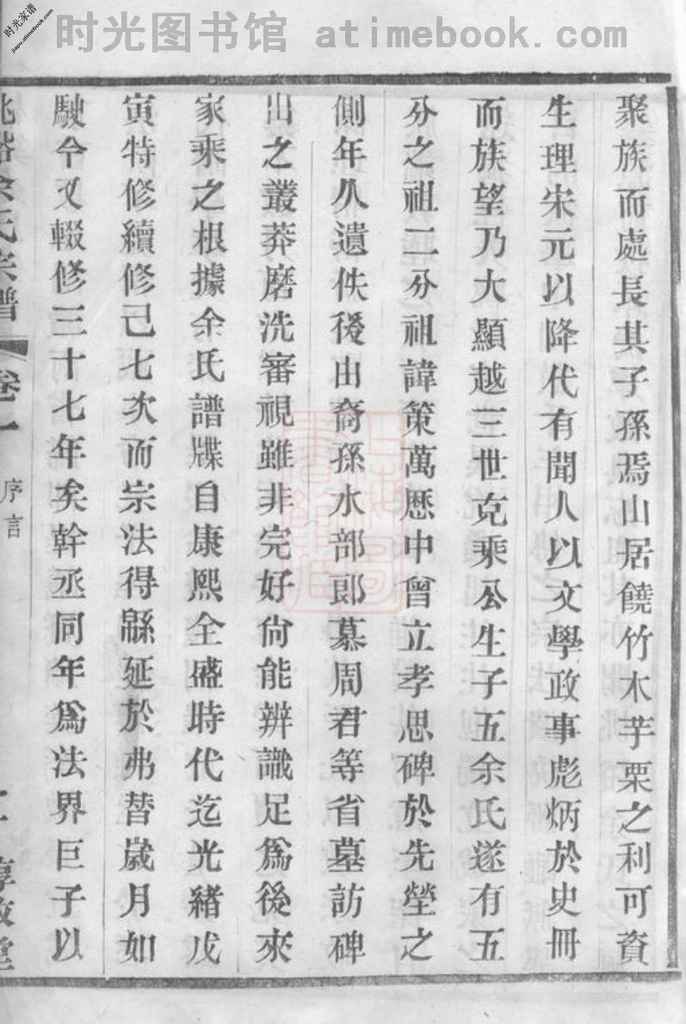 时光图书馆 atimebook.com
时光家谱
聚族而處長其子孫焉山居饒竹木芋栗之利可資
生理宋元以降代有聞人以文學政事彪炳於史冊
而族望乃大顯越三世克乘公生子五余氏遂有五
分之祖二分祖諱策萬歷中曾立孝思碑於先塋之
側年久遺佚後由裔孫水部郎慕周君等省墓訪碑
出之叢莽磨洗審視雖非完好尙能辨識足爲後來
家乘之根據余氏譜牒自康熙全盛時代迄光緒戊
寅特修續修己七次而宗法得緜延於弗替歲月如
駛今又輟修三十七年矣幹丞同年爲法界巨子以
氏宗譜 卷一 序言